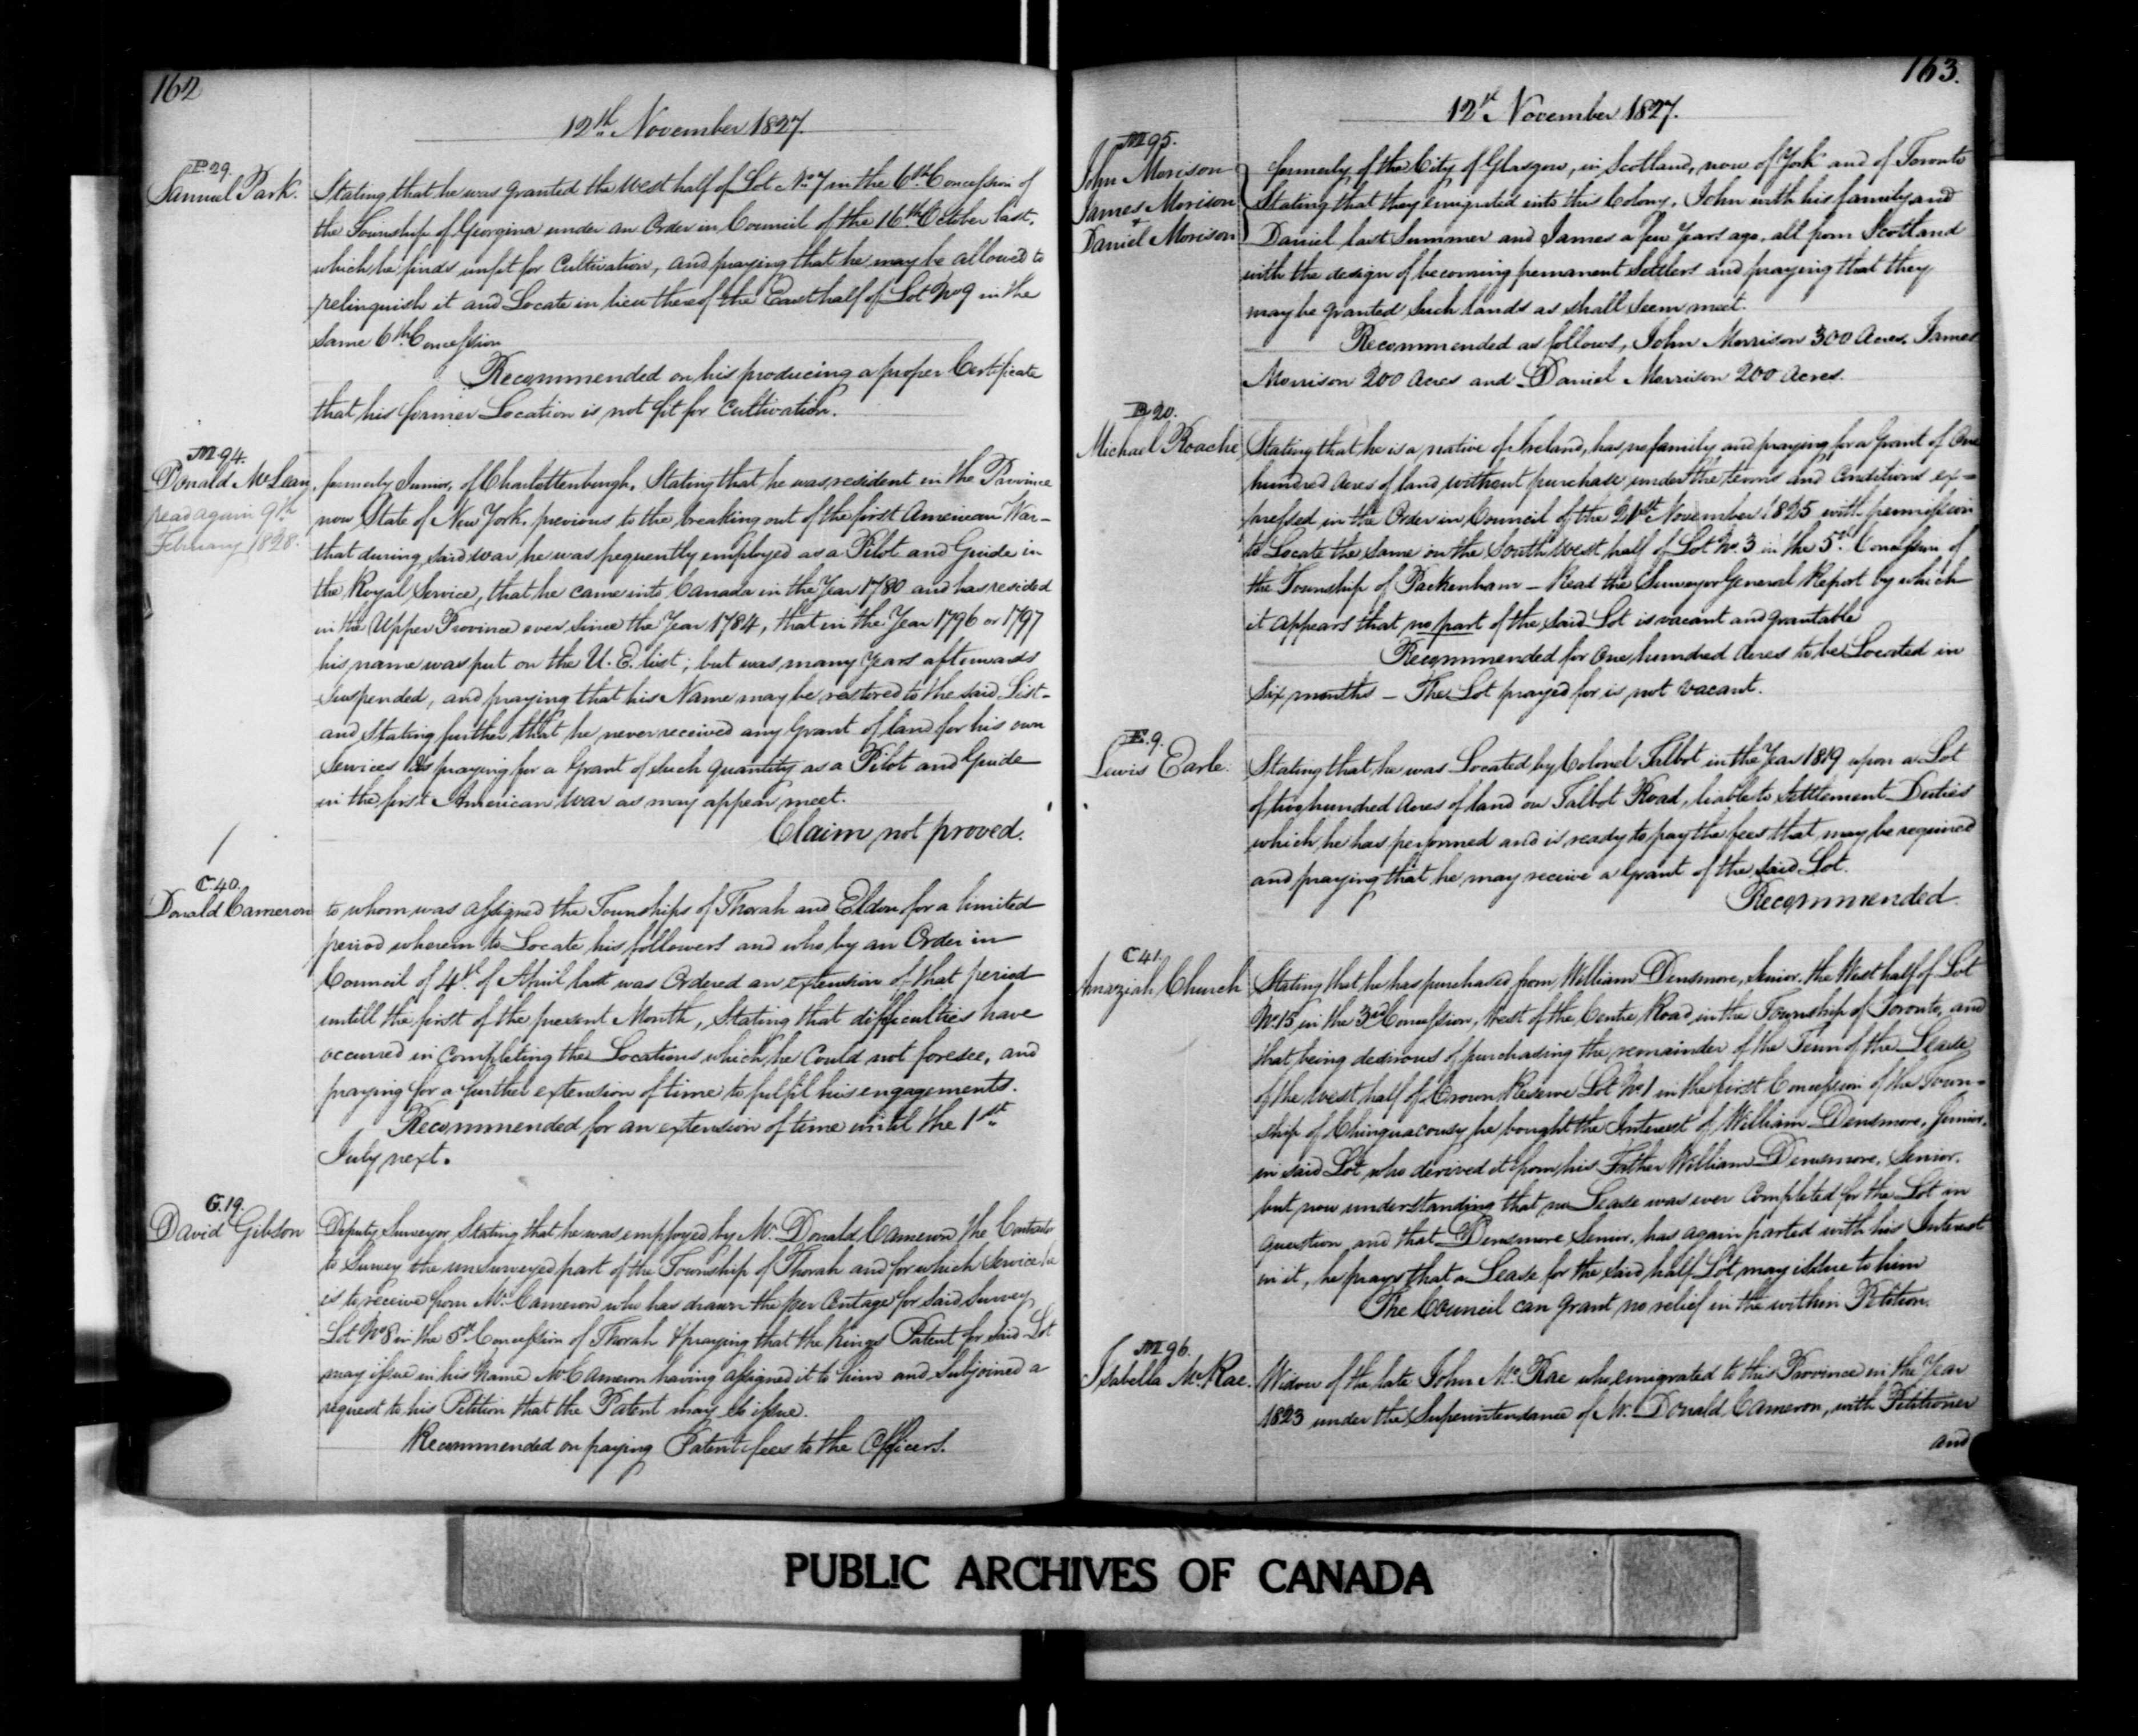 162
12th November 1827.
P. 29.
Samuel Park.
Stating that he was granted the West half of Lot No 7 in the 6th Concession of
the Township of Georgina under an Order in Council of the 16th October last,
which he finds unfit for Cultivation, and praying that he may be allowed to
relinquish it and Locate in lieu thereof the East half of Lot No 9 in the
same 6th Concession
Recommended on his producing a proper Certificate
that his former Location is not fit for Cultivation.
M 94.
Donald McLean,
read again 9th
February 1828.
formerly Junior, of Charlottenburgh, Stating that he was resident in the Province
now State of New York, previous to the breaking out of the first American War -
that during said war he was frequently employed as a Pilot and Guide in
the Royal Service, that he came into Canada in the Year 1780 and has resided
in the Upper Province ever since the Year 1784, that in the Year 1796 or 1797
his name was put on the U. E. list; but was many Years afterwards
suspended, and praying that his Name may be restored to the said List -
and Stating further that he never received any Grant of land for his own
services praying for a Grant of such quantity as a Pilot and Guide
in the first American War as may appear meet.
Claim not proved.
C. 40.
Donald Cameron
to whom was assigned the Townships of Thorah and Eldon for a limited
period wherein to Locate his followers and who by an Order in
Council of 4th of April last was Ordered an extension of that period
untill the first of the present Month, Stating that difficulties have
occurred in Completing the Locations which he Could not foresee, and
praying for a further extension of time to fulfil his engagements.
Recommended for an extension of time until the 1st
July next.
G. 19.
David Gibson
Deputy Surveyor Stating that he was employed by Mr. Donald Cameron the Contractor
to Survey the unsurveyed part of the Township of Thorah and for which Service he
is to receive from Mr. Cameron who has drawn the per Centage for said Survey
Lot No 8 in the 5th Concession of Thorah & praying that the Kings Patent for said Lot
may issue in his Name Mr Cameron having assigned it to him and Subjoined a
request to his Petition that the Patent may so issue.
Recommended on paying Patent fees to the Officers.
163.
12th November 1827.
M 95.
John Morison
James Morison
+
Daniel Morison
formerly of the City of Glasgow, in Scotland, now of York and of Toronto
Stating that they emigrated into this Colony, John with his family and
Daniel last Summer and James a few Years ago, all from Scotland
with the design of becoming permanent Settlers and praying that they
may be granted such lands as shall seem meet.
Recommended as follows, John Morrison 300 Acres, James
Morrison 200 Acres and Daniel Morrison 200 Acres.
R 20.
Michael Roache
Stating that he is a native of Ireland, has no family and praying for a Grant of One
hundred Acres of land without purchase under the terms and Conditions ex=
pressed in the Order in Council of the 21st November 1825 with permission
to Locate the same on the South West half of Lot No. 3 in the 5th Concession of
the Township of Packenham - Read the Surveyor General Report by which
it appears that no part of the said Lot is vacant and grantable
Recommended for One hundred Acres to be Located in
six months - The Lot prayed for is not vacant.
E. 9.
Lewis Earle.
Stating that he was Located by Colonel Talbot in the Year 1819 upon a Lot
of two hundred Acres of land on Talbot Road, liable to Settlement Duties
which he has performed and is ready to pay the fees that may be required
and praying that he may receive a Grant of the said Lot.
Recommended
C 41.
Amaziah Church
Stating that he has purchased from William Densmore, Senior, the West half of Lot
No 15 in the 3rd Concession, West of the Centre Road in the Township of Toronto, and
that being desirous of purchasing the remainder of the Term of the Lease
of the West half of Crown Reserve Lot No 1 in the first Concession of the Town=
ship of Chinguacousy he bought the Interest of William Densmore, Junior,
in said Lot who derived it from his Father William Densmore, Senior.
but now understanding that no Lease was ever Completed for the Lot in
question and that Densmore Senior, has again parted with his Interest
in it, he prays that a Lease for the said half Lot may issue to him
The Council can grant no relief in the within Petition.
M 96.
Isabella McRae.
Widow of the late John McRae who emigrated to this Province in the Year
1823 under the Superintendance of Mr. Donald Cameron, with Petitioner
and
PUBLIC ARCHIVES OF CANADA